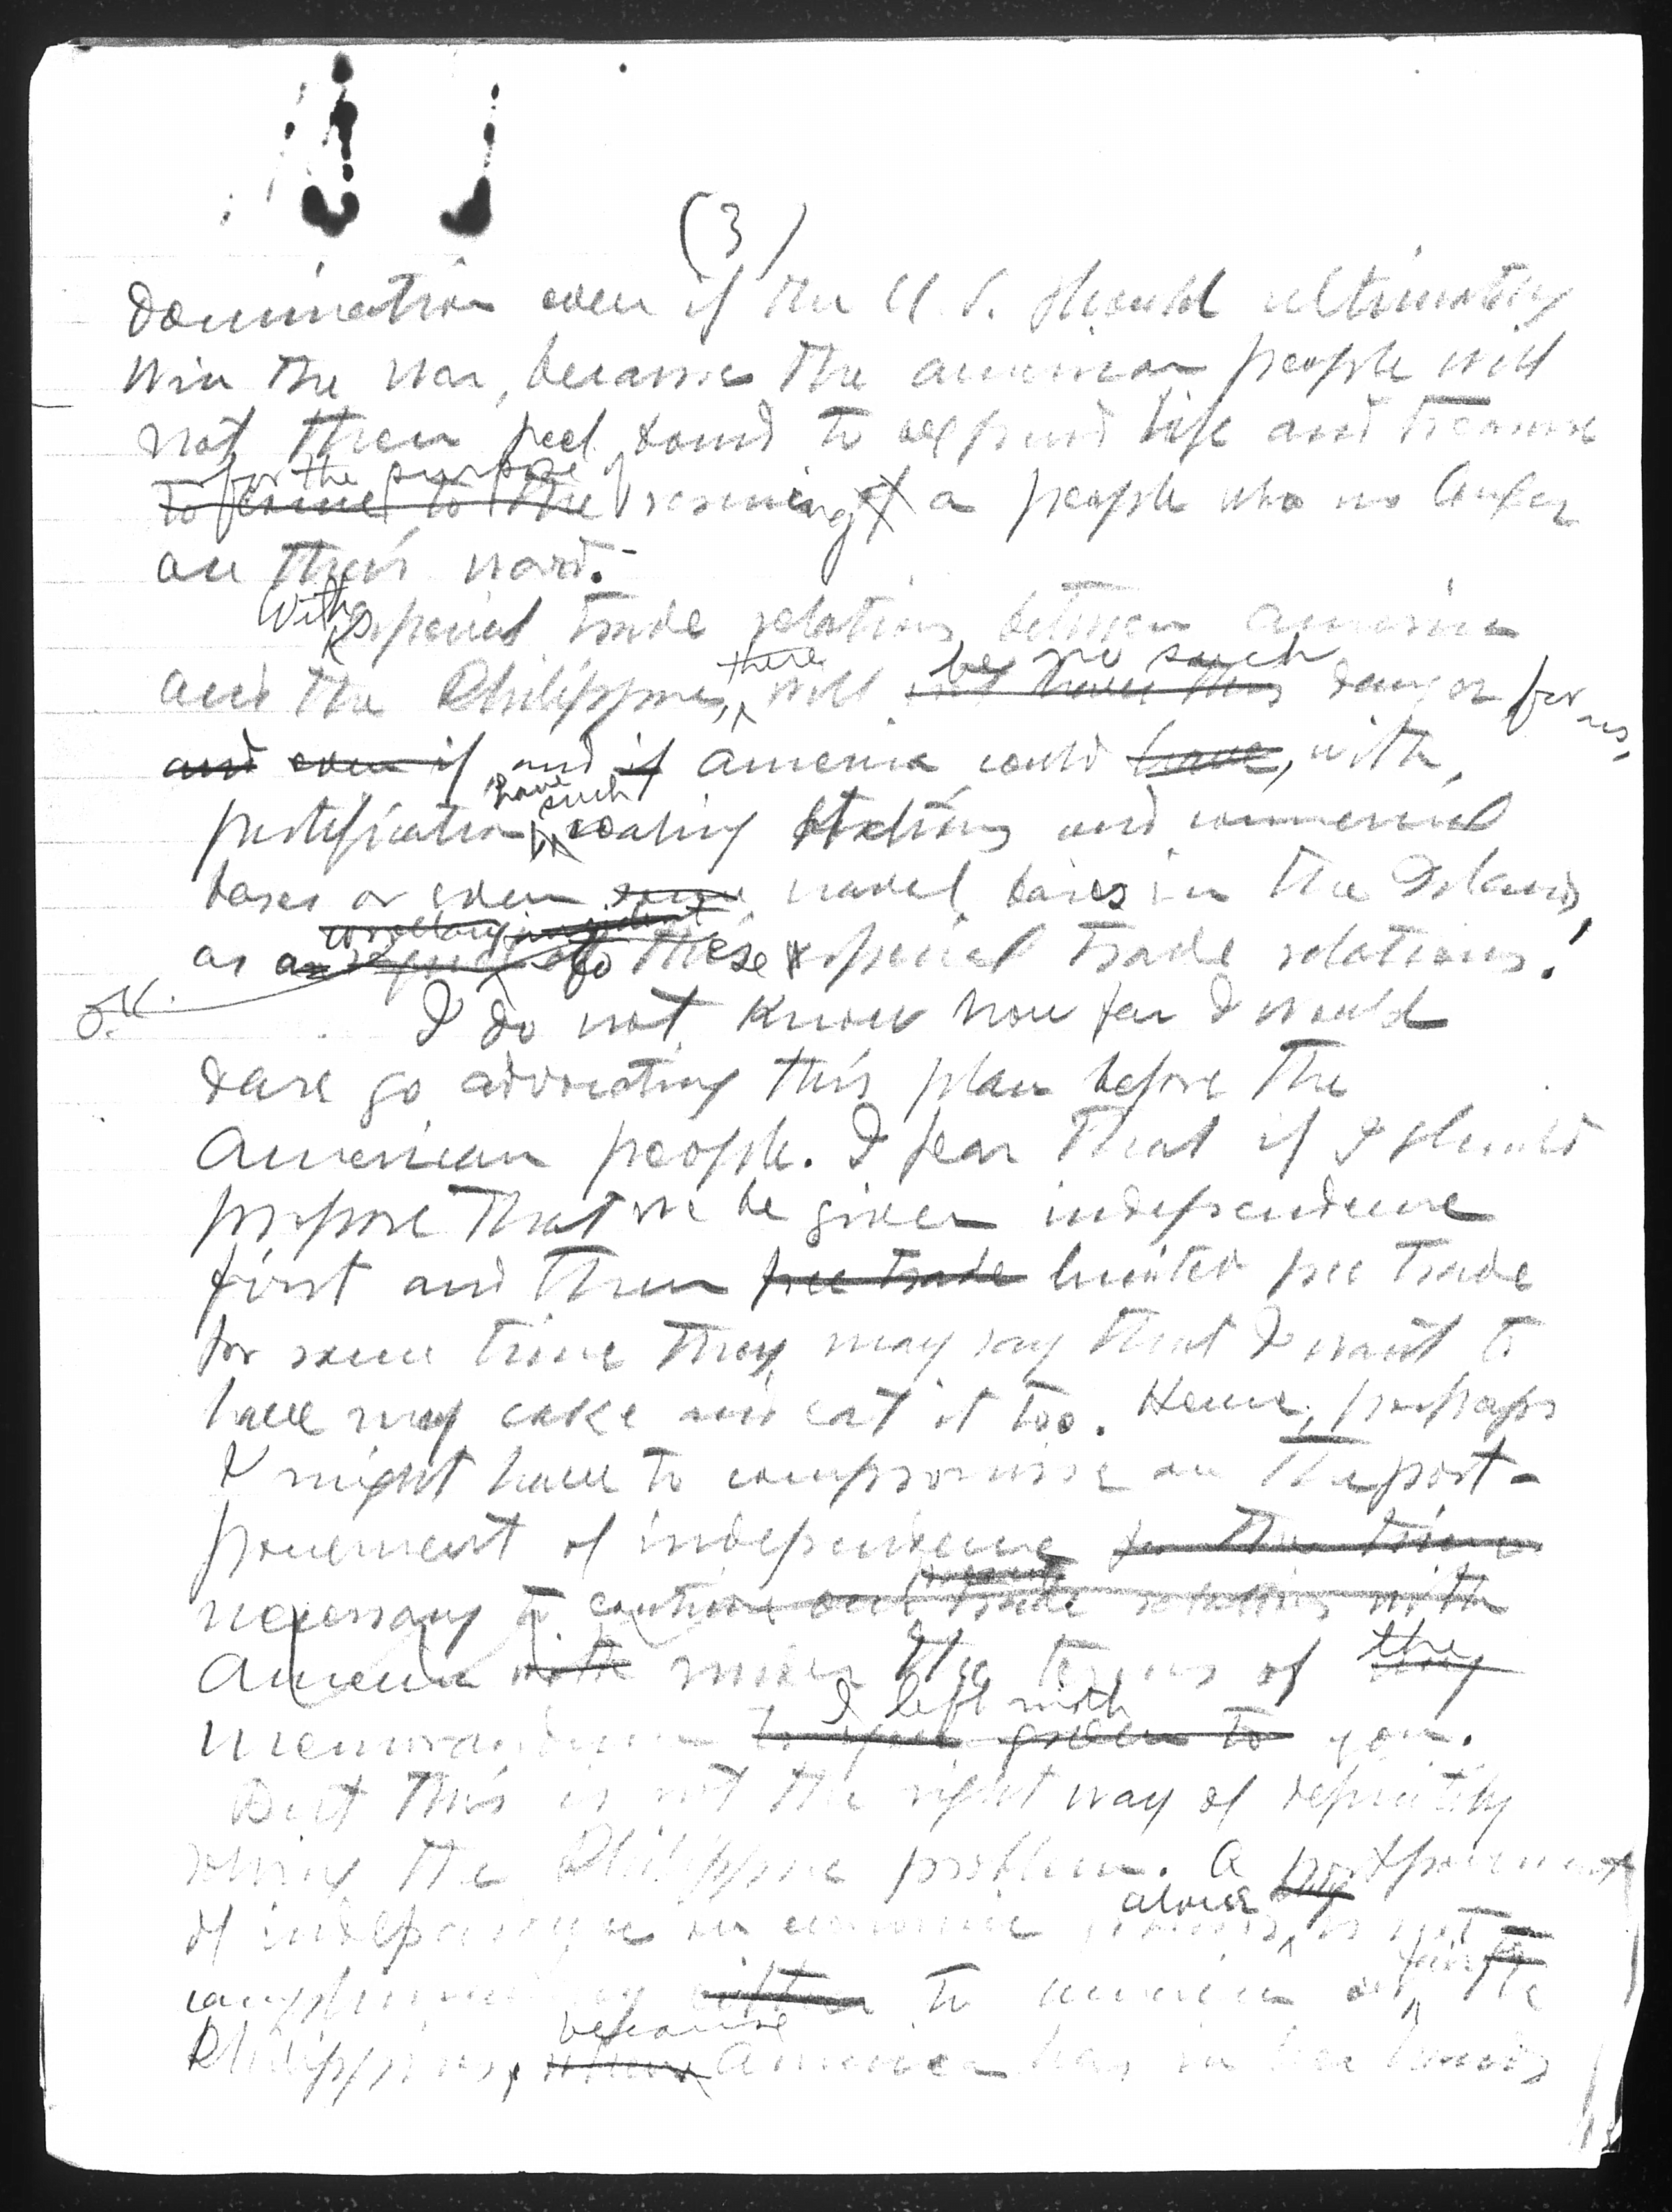 (3)
domination even if the U.S. should ultimately
win the war, because the american people will
not then feel bound to expend life and treasure
for the purpose of
to come to the rescuing of a people who no longer
are their ward.
With special trade relations between america
and the Philippines, there will not have this be no such danger for us,
and even if and if America could have, with
justification, have such coaling stations and commercial
bases or even some naval bases in the Islands,
corollary incident
as an to these special trade relations.
O.K.
I do not know how far I would
dare go advocating this plan before the
American people. I fear that if I should
propose that we be given independence
first and then free trade limited free trade
for some time they may say that I want to
have my cake and eat it too. Hence, perhaps
I might have to compromise on the post-
ponement of independence for the time
necessary to continue our trade relations with
America with under the terms of the
I left with
memorandum to you given to you.
But this is not the right way of definitely
solving the Philippine problem. A postponement
of independence on economic alone is not
to america or fair to the
because
Philippines, America has in her hands